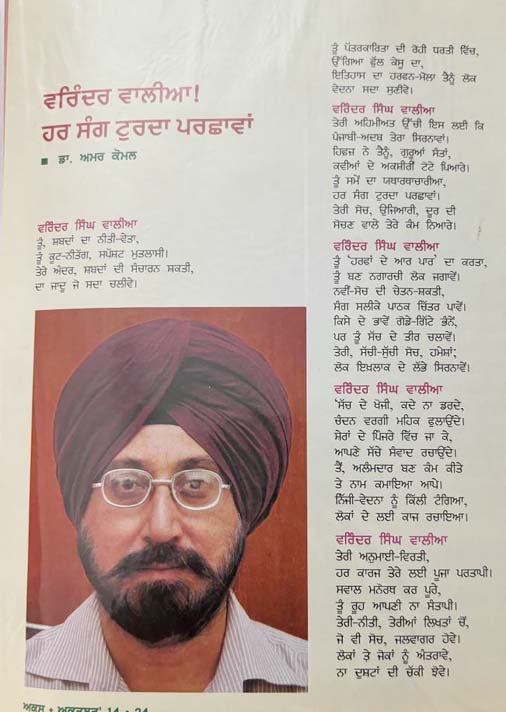 ਵਰਿੰਦਰ ਵਾਲੀਆ!
ਹਰ ਸੰਗ ਟੁਰਦਾ ਪਰਛਾਵਾਂ
■ ਡਾ. ਅਮਰ ਕੋਮਲ
ਵਰਿੰਦਰ ਸਿੰਘ ਵਾਲੀਆ
ਤੂੰ, ਸ਼ਬਦਾਂ ਦਾ ਨੀਤੀ-ਵੇਤਾ,
ਤੂੰ ਕੂਟ-ਨੀਤੱਗ, ਸਪੱਸ਼ਟ ਮੁਤਲਾਸੀ।
ਤੇਰੇ ਅੰਦਰ, ਸ਼ਬਦਾਂ ਦੀ ਸੰਚਾਰਨ ਸ਼ਕਤੀ,
ਦਾ ਜਾਦੂ ਜੋ ਸਦਾ ਚਲੀਵੇ।
ਤੂੰ ਪੱਤਰਕਾਰਿਤਾ ਦੀ ਰੋਹੀ ਧਰਤੀ ਵਿੱਚ,
ਉੱਗਿਆ ਫੁੱਲ ਕੇਸੂ ਦਾ,
ਇਤਿਹਾਸ ਦਾ ਹਰਫਨ-ਮੌਲਾ ਤੈਨੂੰ ਲੋਕ
ਵੇਦਨਾ ਸਦਾ ਸੁਣੀਵੇ।
ਵਰਿੰਦਰ ਸਿੰਘ ਵਾਲੀਆ
ਤੇਰੀ ਅਹਿਮੀਅਤ ਉੱਚੀ ਇਸ ਲਈ ਕਿ
ਪੰਜਾਬੀ-ਅਦਬ ਤੇਰਾ ਸਿਰਨਾਵਾਂ।
ਹਿਫਜ਼ ਨੇ ਤੈਨੂੰ, ਗੁਰੂਆਂ ਸੰਤਾਂ,
ਕਵੀਆਂ ਦੇ ਅਕਸ਼ੀਰੀਂ ਟੋਟੇ ਪਿਆਰੇ।
ਤੂੰ ਸਮੇਂ ਦਾ ਯਥਾਰਥਾਚਾਰੀਆ,
ਹਰ ਸੰਗ ਟੁਰਦਾ ਪਰਛਾਵਾਂ।
ਤੇਰੀ ਸੋਚ, ਉਜਿਆਰੀ, ਦੂਰ ਦੀ
ਸੋਚਣ ਵਾਲੇ ਤੇਰੇ ਕੰਮ ਨਿਆਰੇ।
ਵਰਿੰਦਰ ਸਿੰਘ ਵਾਲੀਆ
ਤੂੰ 'ਹਰਵਾਂ ਦੇ ਆਰ ਪਾਰ' ਦਾ ਕਰਤਾ,
ਤੂੰ ਬਣ ਨਗਾਰਚੀ ਲੋਕ ਜਗਾਵੇਂ।
ਨਵੀਂ-ਸੋਚ ਦੀ ਚੇਤਨ-ਸ਼ਕਤੀ,
ਸੰਗ ਸਲੀਕੇ ਪਾਠਕ ਚਿੱਤਰ ਪਾਵੇਂ।
ਕਿਸੇ ਦੇ ਭਾਵੇਂ ਗੋਡੇ-ਗਿੱਟੇ ਭੰਨੇਂ,
ਪਰ ਤੂੰ ਸੱਚ ਦੇ ਤੀਰ ਚਲਾਵੇਂ।
ਤੇਰੀ, ਸੱਚੀ-ਸੁੱਚੀ ਸੋਚ, ਹਮੇਸ਼ਾਂ;
ਲੋਕ ਇਖ਼ਲਾਕ ਦੇ ਲੱਭੇ ਸਿਰਨਾਵੇਂ।
ਵਰਿੰਦਰ ਸਿੰਘ ਵਾਲੀਆ
'ਸੱਚ ਦੇ ਖੋਜੀ, ਕਦੇ ਨਾ ਡਰਦੇ,
ਚੰਦਨ ਵਰਗੀ ਮਹਿਕ ਫੁਲਾਉਂਦੇ।
ਸ਼ੇਰਾਂ ਦੇ ਪਿੰਜਰੇ ਵਿੱਚ ਜਾ ਕੇ,
ਆਪਣੇ ਸੱਚੇ ਸੰਵਾਦ ਰਚਾਉਂਦੇ।
ਤੈਂ, ਅਲੰਮਦਾਰ ਬਣ ਕੰਮ ਕੀਤੇ
ਤੇ ਨਾਮ ਕਮਾਇਆ ਆਪੇ।
ਨਿੱਜੀ-ਵੇਦਨਾ ਨੂੰ ਕਿੱਲੀ ਟੰਗਿਆ,
ਲੋਕਾਂ ਦੇ ਲਈ ਕਾਜ ਰਚਾਇਆ।
ਵਰਿੰਦਰ ਸਿੰਘ ਵਾਲੀਆ
ਤੇਰੀ ਅਨੁਮਾਈ-ਵਿਰਤੀ,
ਹਰ ਕਾਰਜ ਤੇਰੇ ਲਈ ਪੂਜਾ ਪਰਤਾਪੀ।
ਸਵਾਲ ਮਨੋਰਥ ਕਰ ਪੂਰੇ,
ਤੂੰ ਰੂਹ ਆਪਣੀ ਨਾ ਸੰਤਾਪੀ।
ਤੇਰੀ-ਨੀਤੀ, ਤੇਰੀਆਂ ਲਿਖਤਾਂ ਚੋਂ,
ਜੋ ਵੀ ਸੋਚ, ਜਲਵਾਗਰ ਹੋਵੇ।
ਲੋਕਾਂ ਤੇ ਜੋਕਾਂ ਨੂੰ ਅੰਤਰਾਵੇ,
ਨਾ ਦੁਸ਼ਟਾਂ ਦੀ ਚੱਕੀ ਝੋਵੇ।
ਅਕਸ • ਅਕਤੂਬਰ' 14 • 24